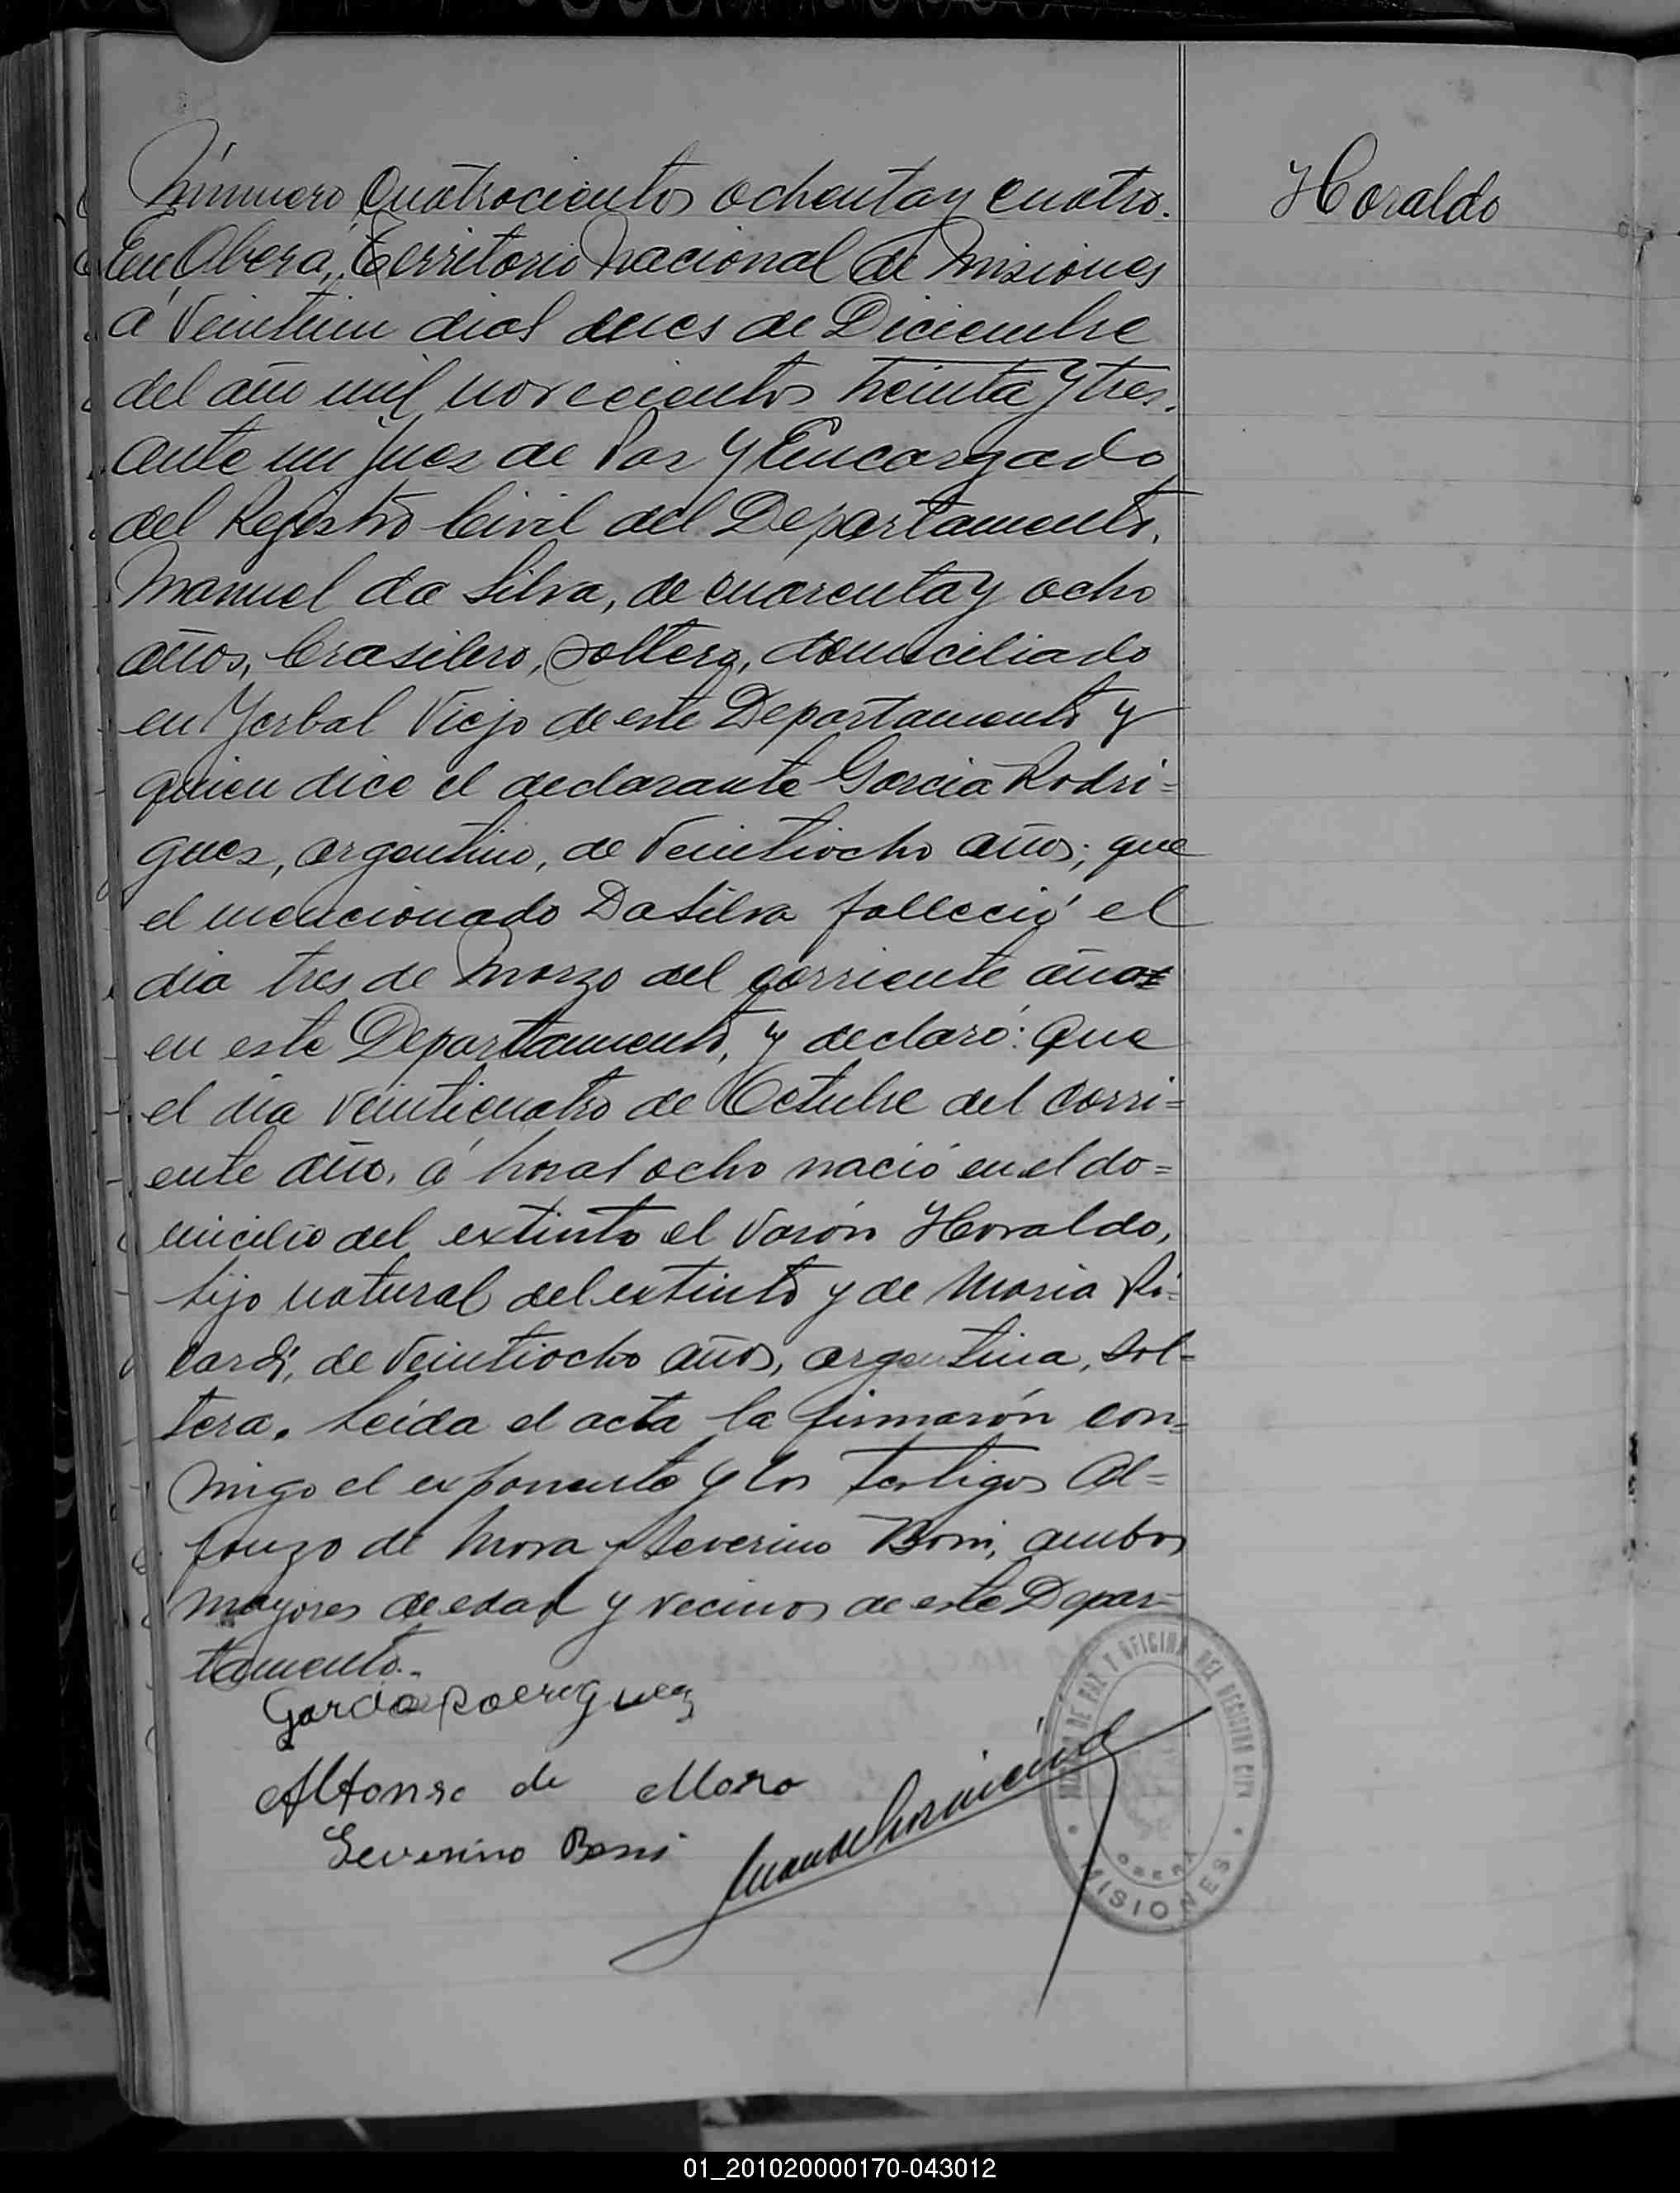 Número Cuatrocientos ochenta y cuatro.
Horaldo
En Oberá, Territorio Nacional de Misiones
á veintiun dias del mes de Diciembre
del año mil novecientos treinta y tres.
ante mi Juez de Paz y Encargado
del Registro Civil del Departamento.
Manuel da Silva, de cuarenta y ocho
años, brasilero, soltero, domiciliado
en Yerbal Viejo de este Departamento y
quien dice el declarante Garcia Rodri=
gues, argentino, de veintiocho años; que
el mencionado DaSilva falleció el
dia tres de Marzo del corriente año
en este Departamento, y declaró: Que
el dia veinticuatro de Octubre del corri=
ente año, á horas ocho nació en el do=
micilio del extinto el varón Horaldo,
hijo natural del extinto y de Maria Ri=
cardi, de veintiocho años, argentina, sol=
tera. Leida el acta la firmarón con=
migo el exponente y los testigos Al=
fonzo de Mora y Severino Boni, ambos
mayores de edad y vecinos de este Depar=
tamento.-
Garcia Rodriguez
Alfonso de Mora
Severino Boni
JUZGADO DE PAZ Y OFICINA DEL REGISTRO CIVIL
OBERA
MISIONES
01_201020000170-043012